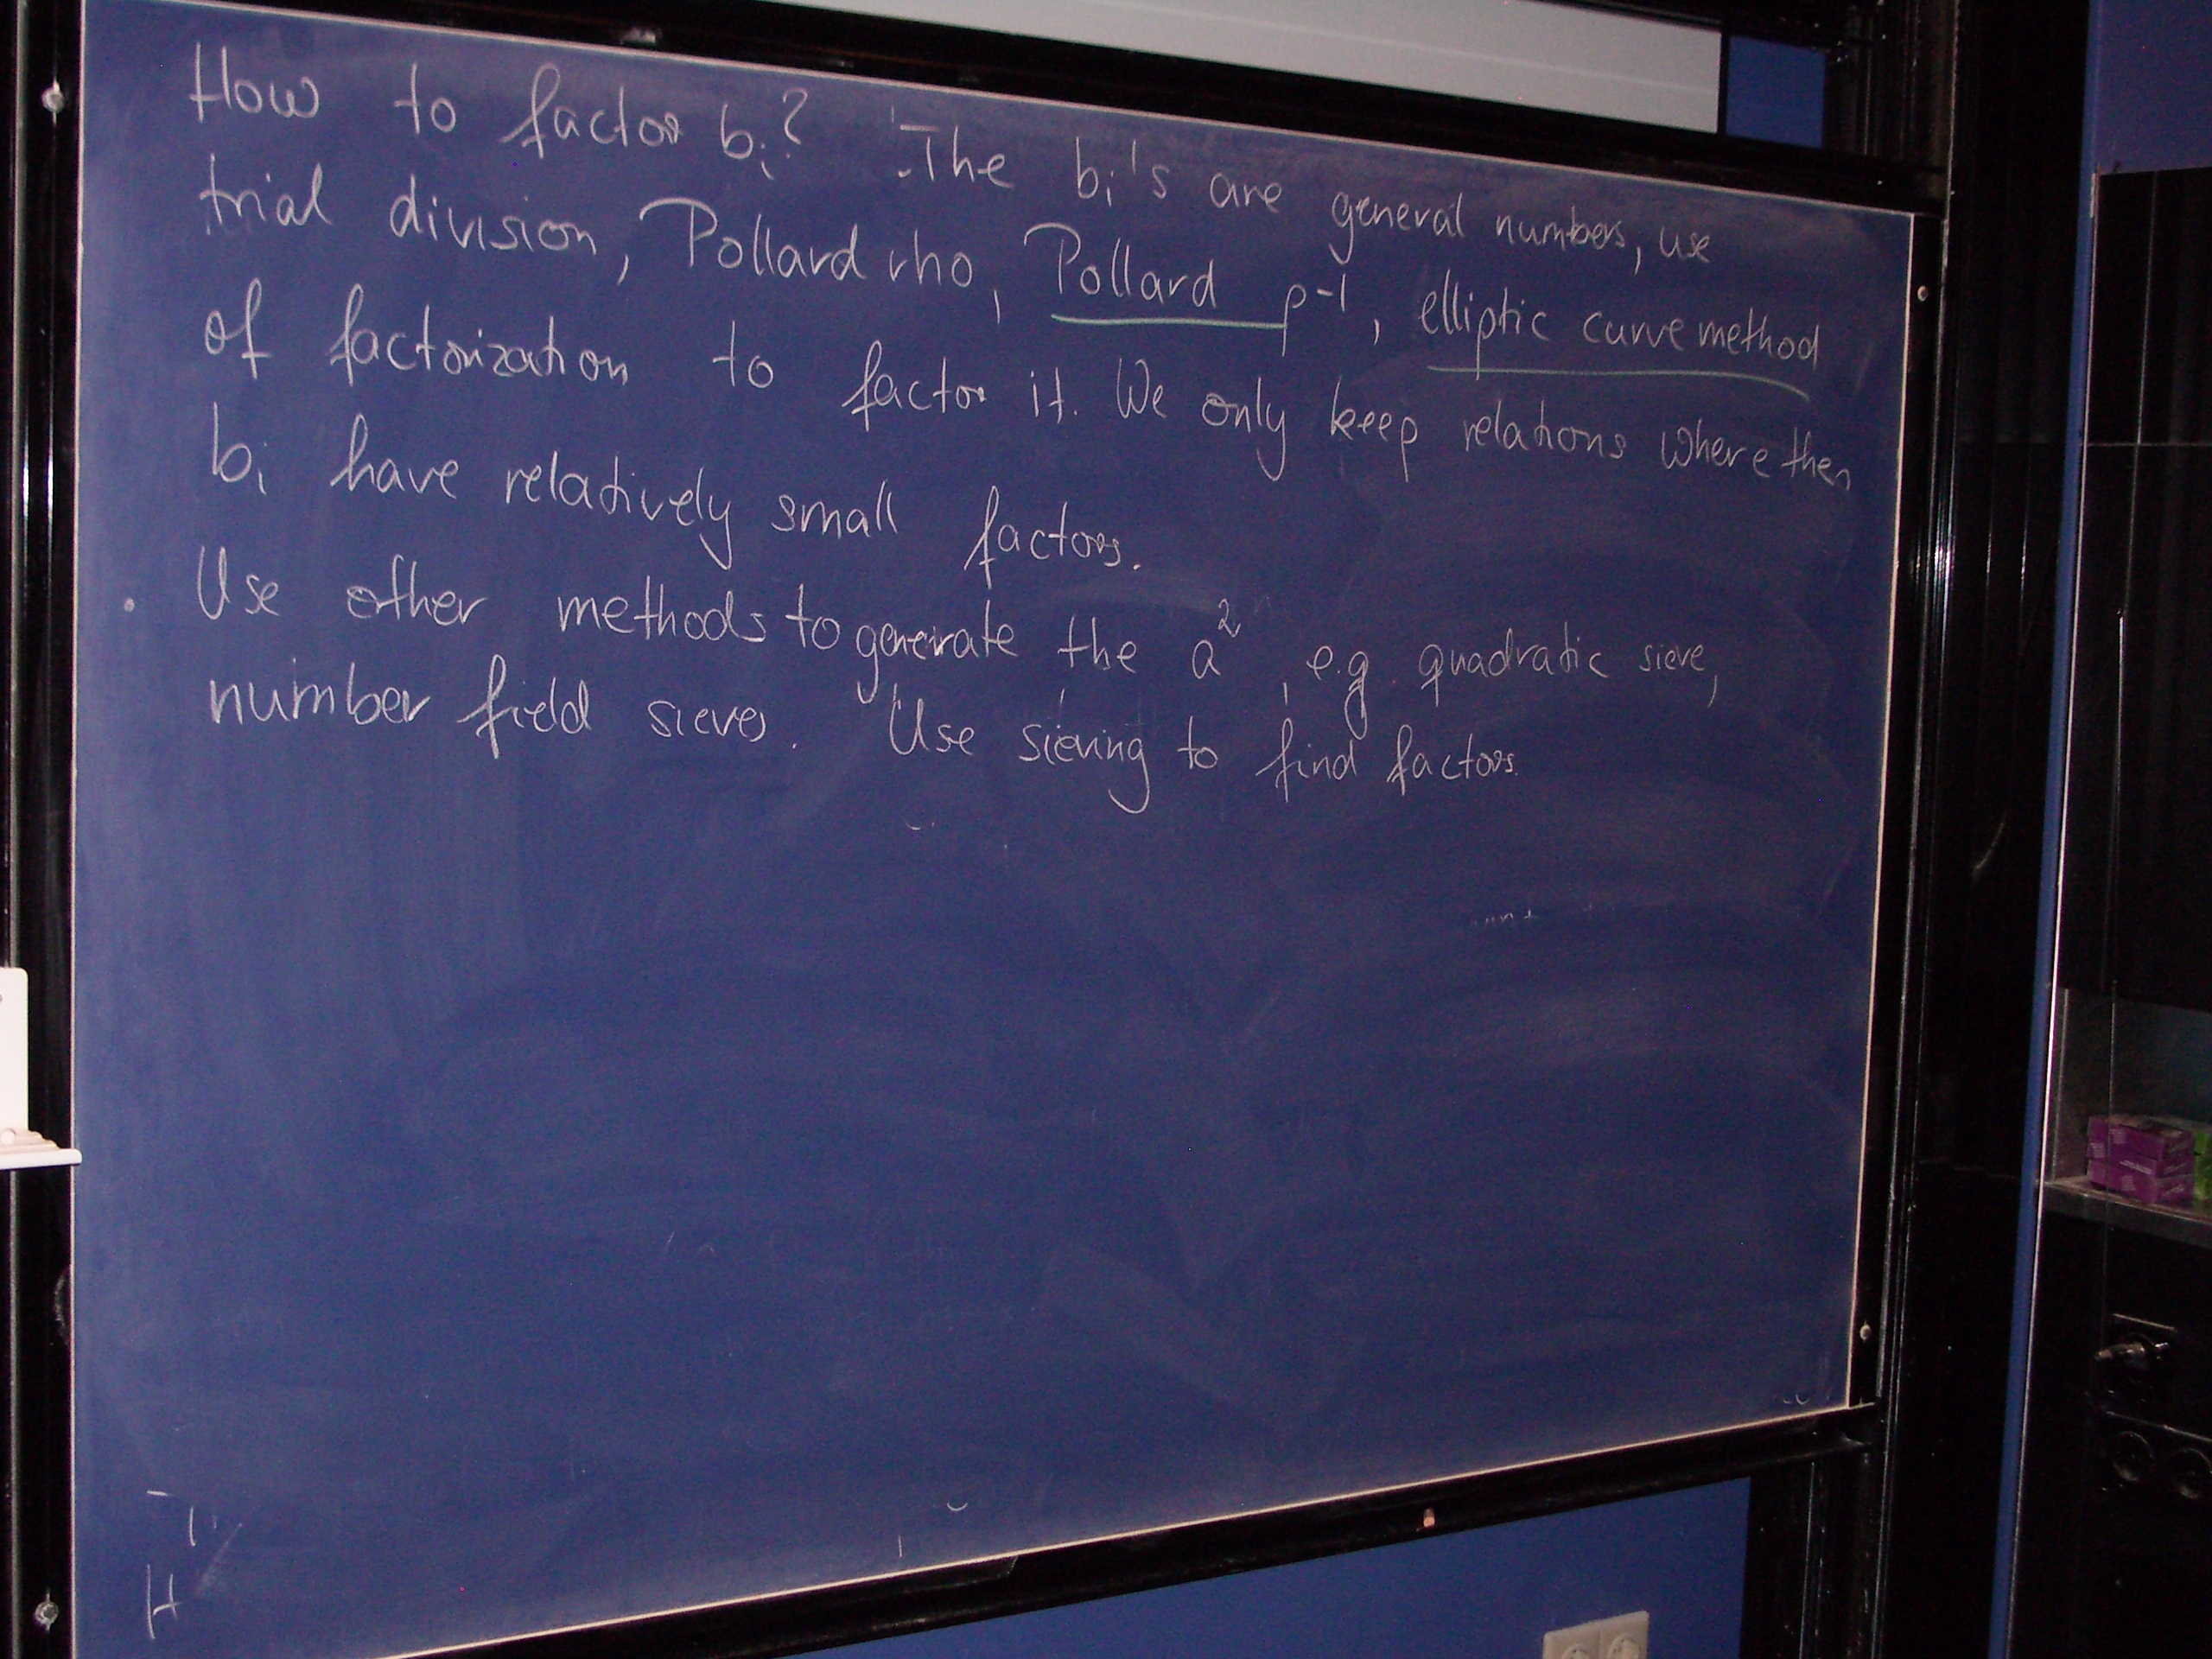 How to factor bᵢ? The bᵢ's are general numbers, use
trial division, Pollard rho, Pollard p-1, elliptic curve method
of factorization to factor it. We only keep relations where the
bᵢ have relatively small factors.
· Use other methods to generate the a², e.g quadratic sieve,
number field sieve. Use sieving to find factors.